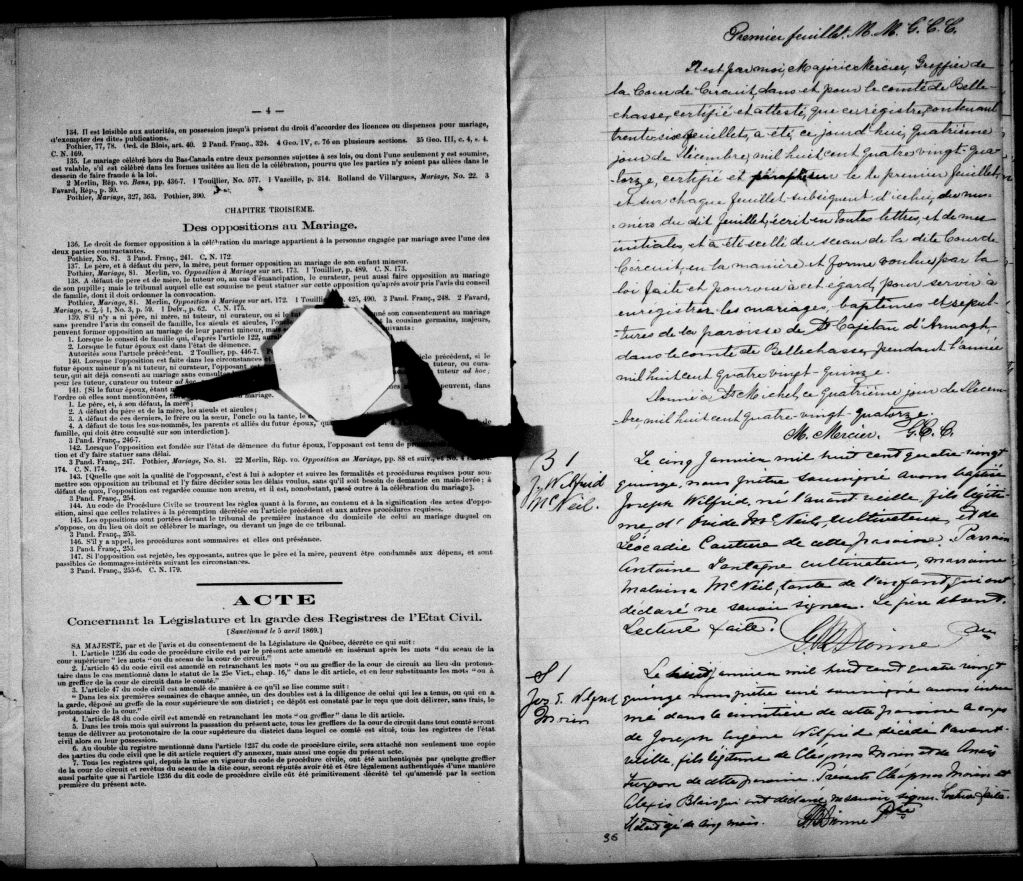 — 4 —
134. Il est loisible aux autorités, en possession jusqu'à présent du droit d'accorder des licences ou dispenses pour mariage,
d'exempter des dites publications.
Pothier, 77, 78. Ord. de Blois, art. 40. 2 Pand. Franç., 324. 4 Geo. IV, c. 76 en plusieurs sections. 35 Geo. III, c. 4, s. 4.
C. N. 169.
135. Le mariage célébré hors du Bas-Canada entre deux personnes sujettes à ses lois, ou dont l'une seulement y est soumise,
est valable, s'il est célébré dans les formes usitées au lieu de la célébration, pourvu que les parties n'y soient pas allées dans le
dessein de faire fraude à la loi.
2 Merlin, Rép. vo. Bans, pp. 436-7. 1 Touillier, No. 577. 1 Vazeille, p. 314. Rolland de Villargues, Mariage, No. 22. 3
Favard, Rép., p. 30.
Pothier, Mariage, 327, 363. Pothier, 390.
CHAPITRE TROISIÈME.
Des oppositions au Mariage.
136. Le droit de former opposition à la célébration du mariage appartient à la personne engagée par mariage avec l'une des
deux parties contractantes.
Pothier, No. 81. 3 Pand. Franç., 241. C. N. 172.
137. Le père, et à défaut du père, la mère, peut former opposition au mariage de son enfant mineur.
Pothier, Mariage, 81. Merlin, vo. Opposition à Mariage sur art. 173. 1 Touillier, p. 489. C. N. 173.
138. A défaut de père et de mère, le tuteur ou, au cas d'émancipation, le curateur, peut aussi faire opposition au mariage
de son pupille; mais le tribunal auquel elle est soumise ne peut statuer sur cette opposition qu'après avoir pris l'avis du conseil
de famille, dont il doit ordonner la convocation.
Pothier, Mariage, 81. Merlin, Opposition à Mariage sur art. 172. 1 Touillier, 425, 490. 3 Pand. Franç., 248. 2 Favard,
Mariage, s. 2, § 1, No. 3, p. 59. 1 Delv., p. 62. C. N. 175.
139. S'il n'y a ni père, ni mère, ni tuteur, ni curateur, ou si le né son consentement au mariage
sans prendre l'avis du conseil de famille, les aïeuls et aïeules, l'oncle la cousine germains, majeurs,
peuvent former opposition au mariage de leur parent uivants:
1. Lorsque le conseil de famille qui, d'après l'article 122,
2. Lorsque le futur époux est dans l'état de démence.
Autorités sous l'article précédent. 2 Toullier, pp. 446-7.
140. Lorsque l'opposition est faite dans les circonstances et icle précédent, si le
futur époux mineur n'a ni tuteur, ni curateur, l'opposant tuteur, ou cura-
teur, qui ait déjà consenti au mariage sans consulter tuteur ad hoc;
pour les tuteur, curateur ou tuteur ad hoc
141. [Si le futur époux, étant peuvent, dans
l'ordre où elles sont mentionnées, mariage.
1. Le père, et, à son défaut, la mère;
2. A défaut du père et de la mère, les aïeuls et aïeules;
3. A défaut de ces derniers, le frère ou la sœur, l'oncle ou la tante, le
4. A défaut de tous les sus-nommés, les parents et alliés du futur époux,
famille, qui doit être consulté sur son interdiction].
3 Pand. Franç., 246-7.
142. Lorsque l'opposition est fondée sur l'état de démence du futur époux, l'opposant est tenu de
tion et d'y faire statuer sans délai.
3 Pand. Franç., 247. Pothier, Mariage, No. 81. 22 Merlin, Rép. vo. Opposition au Mariage, pp. 88 et suiv.,
174. C. N. 174.
143. [Quelle que soit la qualité de l'opposant, c'est à lui à adopter et suivre les formalités et procédures requises pour sou-
mettre son opposition au tribunal et l'y faire décider sous les délais voulus, sans qu'il soit besoin de demande en main-levée; à
défaut de quoi, l'opposition est regardée comme non avenue, et il est, nonobstant, passé outre à la célébration du mariage].
3 Pand. Franç., 254.
144. Au code de Procédure Civile se trouvent les règles quant à la forme, au contenu et à la signification des actes d'oppo-
sition, ainsi que celles relatives à la péremption décrétée en l'article précédent et aux autres procédures requises.
145. Les oppositions sont portées devant le tribunal de première instance du domicile de celui au mariage duquel on
s'oppose, ou du lieu où doit se célébrer le mariage, ou devant un juge de ce tribunal.
3 Pand. Franç., 253.
146. S'il y a appel, les procédures sont sommaires et elles ont préséance.
3 Pand. Franç., 253.
147. Si l'opposition est rejetée, les opposants, autres que le père et la mère, peuvent être condamnés aux dépens, et sont
passibles de dommages-intérêts suivant les circonstances.
3 Pand. Franç., 255-6. C. N. 179.
ACTE
Concernant la Législature et la garde des Registres de l'Etat Civil.
[Sanctionné le 5 avril 1869.]
SA MAJESTÉ, par et de l'avis et du consentement de la Législature de Québec, décrète ce qui suit:
1. L'article 1236 du code de procédure civile est par le présent acte amendé en insérant après les mots "du sceau de la
cour supérieure" les mots "ou du sceau de la cour de circuit."
2. L'article 45 du code civil est amendé en retranchant les mots "ou au greffier de la cour de circuit au lieu du protono-
taire dans le cas mentionné dans le statut de la 25e Vict., chap. 16," dans le dit article, et en leur substituants les mots "ou à
un greffier de la cour de circuit dans le comté."
3. L'article 47 du code civil est amendé de manière à ce qu'il se lise comme suit:
"Dans les six premières semaines de chaque année, un des doubles est à la diligence de celui qui les a tenus, ou qui en a
la garde, déposé au greffe de la cour supérieure de son district; ce dépôt est constaté par le reçu que doit délivrer, sans frais, le
protonotaire de la cour."
4. L'article 48 du code civil est amendé en retranchant les mots "ou greffier" dans le dit article.
5. Dans les trois mois qui suivront la passation du présent acte, tous les greffiers de la cour de circuit dans tout comté seront
tenus de délivrer au protonotaire de la cour supérieure du district dans lequel ce comté est situé, tous les registres de l'état
civil alors en leur possession.
6. Au double du registre mentionné dans l'article 1237 du code de procédure civile, sera attaché non seulement une copie
des parties du code civil que le dit article requiert d'y annexer, mais aussi une copie du présent acte.
7. Tous les registres qui, depuis la mise en vigueur du code de procédure civile, ont été authentiqués par quelque greffier
de la cour de circuit et revêtus du sceau de la dite cour, seront réputés avoir été et être légalement authentiqués d'une manière
aussi parfaite que si l'article 1236 du dit code de procédure civile eût été primitivement décrété tel qu'amendé par la section
première du présent acte.
Premier feuillet. M. M. G. C. C.
N est par moi, Majoric Mercier, Greffier de
la Cour de Circuit, dans et pour le comté de Belle-
chasse, certifié et attesté, que ce registre, contenant
trente six feuillets, a été, ce jourd'hui, quatrième
jour de Décembre, mil huit cent quatre vingt-qua-
torze, certifié et le premier feuillet,
et sur chaque feuillet subséquent d'icelui, du nu-
méro du dit feuillet, écrit en toutes lettres, et de mes
initiales, et a été scellé du sceau de la dite Cour de
Circuit, en la manière et forme voulue par la
loi faite et pourvue à cet égard, pour servir à
enregistrer les mariages, baptêmes et sépul-
tures de la paroisse de St Cajétan d'Armagh,
dans le comté de Bellechasse, pendant l'année
mil huit cent quatre vingt-quinze.
Donné à St Michel, ce quatrième jour de Décem-
bre, mil huit cent quatre-vingt-quatorze.
M. Mercier. G. C. C.
B 1
J. Wilfrid
McNeil.
Le cinq Janvier mil huit cent quatre-vingt
quinze, nous prêtre soussigné avons baptisé
Joseph Wilfrid, né l'avant veille, fils légiti-
me d'Ovide McNeil, cultivateur, et de
Léocadie Couture de cette paroisse. Parrain
Antoine Lantagne cultivateur, marraine
Malvina McNeil, tante de l'enfant, qui ont
déclaré ne savoir signer. Le père absent.
Lecture faite.
Dionne Ptre
S 1
Jos. E. Wilfrid
Morin
Le huit janvier mil huit cent quatre vingt
quinze nous prêtre curé soussigné avons inhu-
mé dans le cimetière de cette paroisse le corps
de Joseph Eugène Wilfrid décédé l'avant-
veille, fils légitime de Cléophas Morin et de
Turgeon de cette paroisse. Présents Cléophas Morin et
Alexis Blais qui ont déclaré ne savoir signer. Lecture faite.
Il était âgé de cinq mois. Dionne Ptre
36